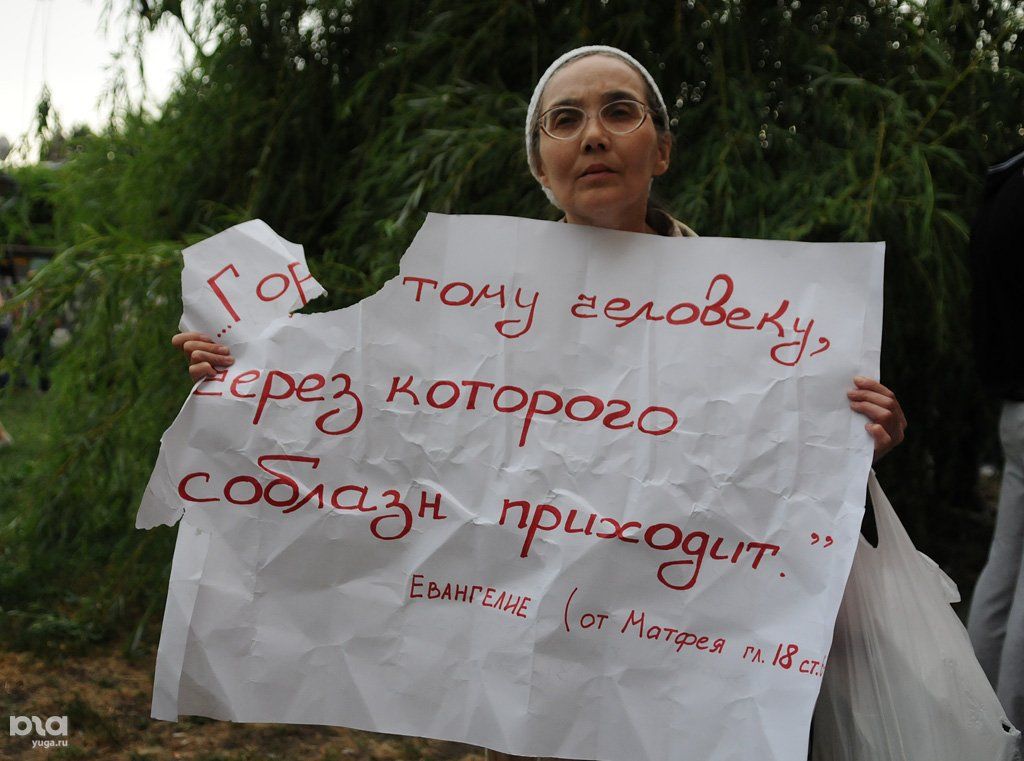 ...Гор тому человеку,
через которого
соблазн приходит."
Евангелие (от Матфея гл. 18 ст.
yuga.ru